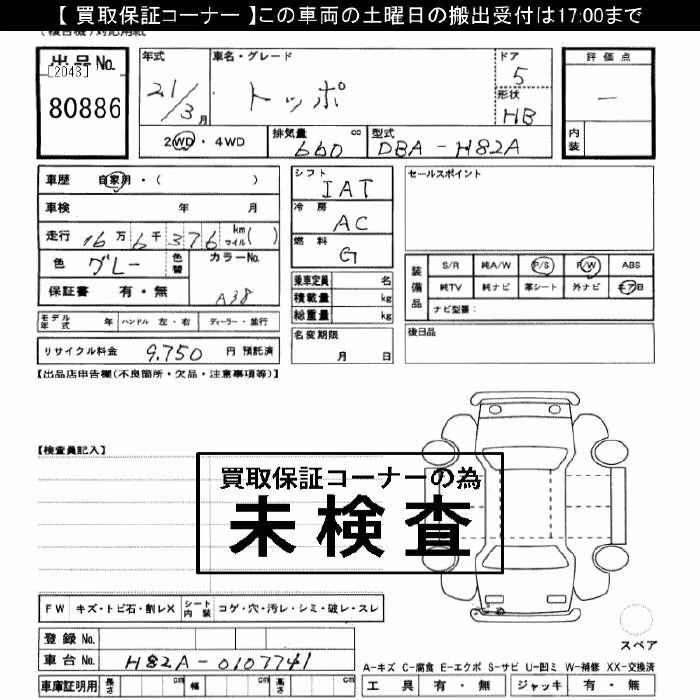 【 買取保証コーナー 】この車両の土曜日の搬出受付は17:00まで
出品No.
[2043]
80886
年式
21/3月
車名・グレード
トッポ
ドア
5
形状
HB
評価点
—
内装
2WD・4WD
排気量 cc
660
型式
DBA-H82A
車歴 自家用・( )
車検 年 月
走行 16万6千376 km マイル( )
色 グレー 色替
カラーNo.
A38
保証書 有・無
シフト
IAT
冷房
AC
燃料
G
セールスポイント
乗車定員 名
積載量 kg
総重量 kg
装備品
S/R 純A/W P/S P/W ABS
純TV 純ナビ 革シート 外ナビ エアB
ナビ型番:
モデル年式 年 ハンドル 左・右 ディーラー・並行
リサイクル料金 9,750 円 預託済
名変期限
月 日
後日品
【出品店申告欄(不良箇所・欠品・注意事項等)】
【検査員記入】
買取保証コーナーの為
未検査
FW キズ・トビ石・割レX シート内装 コゲ・穴・汚レ・シミ・破レ・スレ
登録No.
車台No. H82A-0107741
車庫証明用 長さ cm 幅 cm 高さ cm
スペア
A-キズ C-腐食 E-エクボ S-サビ U-凹ミ W-補修 XX-交換済
工具 有・無 ジャッキ 有・無